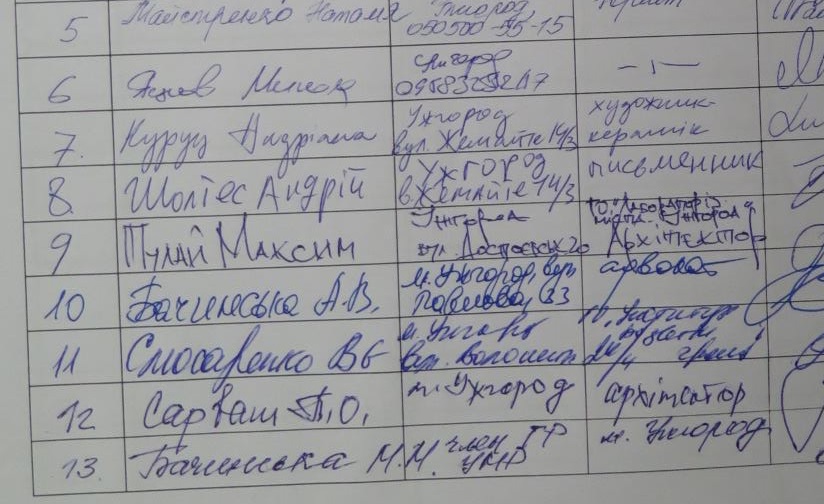 5 Майстренко Наталя Ужгород, 050500-55-15
6 Яцків Ужгород
7. Куруц Андріана Ужгород вул. Жемайте 14/3 художник-керамік
8. Шолтес Андрій Ужгород в. Жемайте 14/3 письменник
9 Пулай Максим Ужгород вул. Достоєвського ГО "Лабораторія міста Ужгород" Архітектор
10 Бачинська А.В. м. Ужгород, вул Павлова, 33 адвокат
11 Слюсаренко В Є м. Ужгород вул. Волошина
12 Сарваш П.О. м. Ужгород архітектор
13. Бачинська М.М. член ГР УМР м. Ужгород